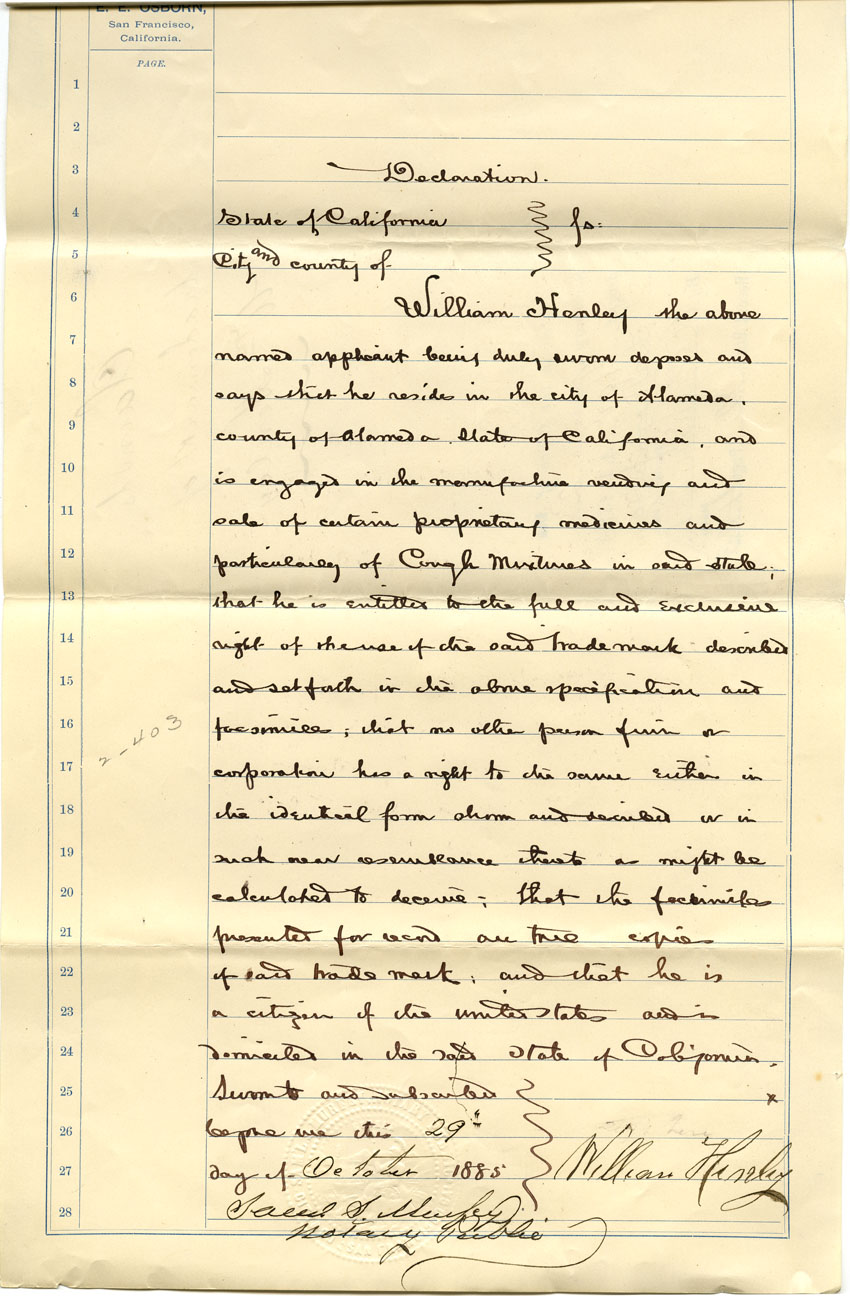 E. E. OSBORN,
San Francisco,
California.
PAGE.
1
2
3 Declaration.
4 State of California } ss:
5 City and county of
6 William Henley the above
7 named applicant being duly sworn deposes and
8 says that he resides in the city of Alameda,
9 county of Alameda State of California, and
10 is engaged in the manufacture vending and
11 sale of certain proprietary medicines and
12 particularly of Cough Mixtures in said state;
13 that he is entitled to the full and exclusive
14 right of the use of the said trade mark described
15 and set forth in the above specification and
16 facsimiles; that no other person firm or
2-403
17 corporation has a right to the same either in
18 the identical form shown and described or in
19 such near resemblance thereto as might be
20 calculated to deceive; that the facsimiles
21 presented for record are true copies
22 of said trade mark; and that he is
23 a citizen of the united states and is
24 domiciled in the said State of California.
25 Sworn to and subscribed x
26 before me this 29th
27 day of October 1885 } William Henley
28 S.
Notary Public